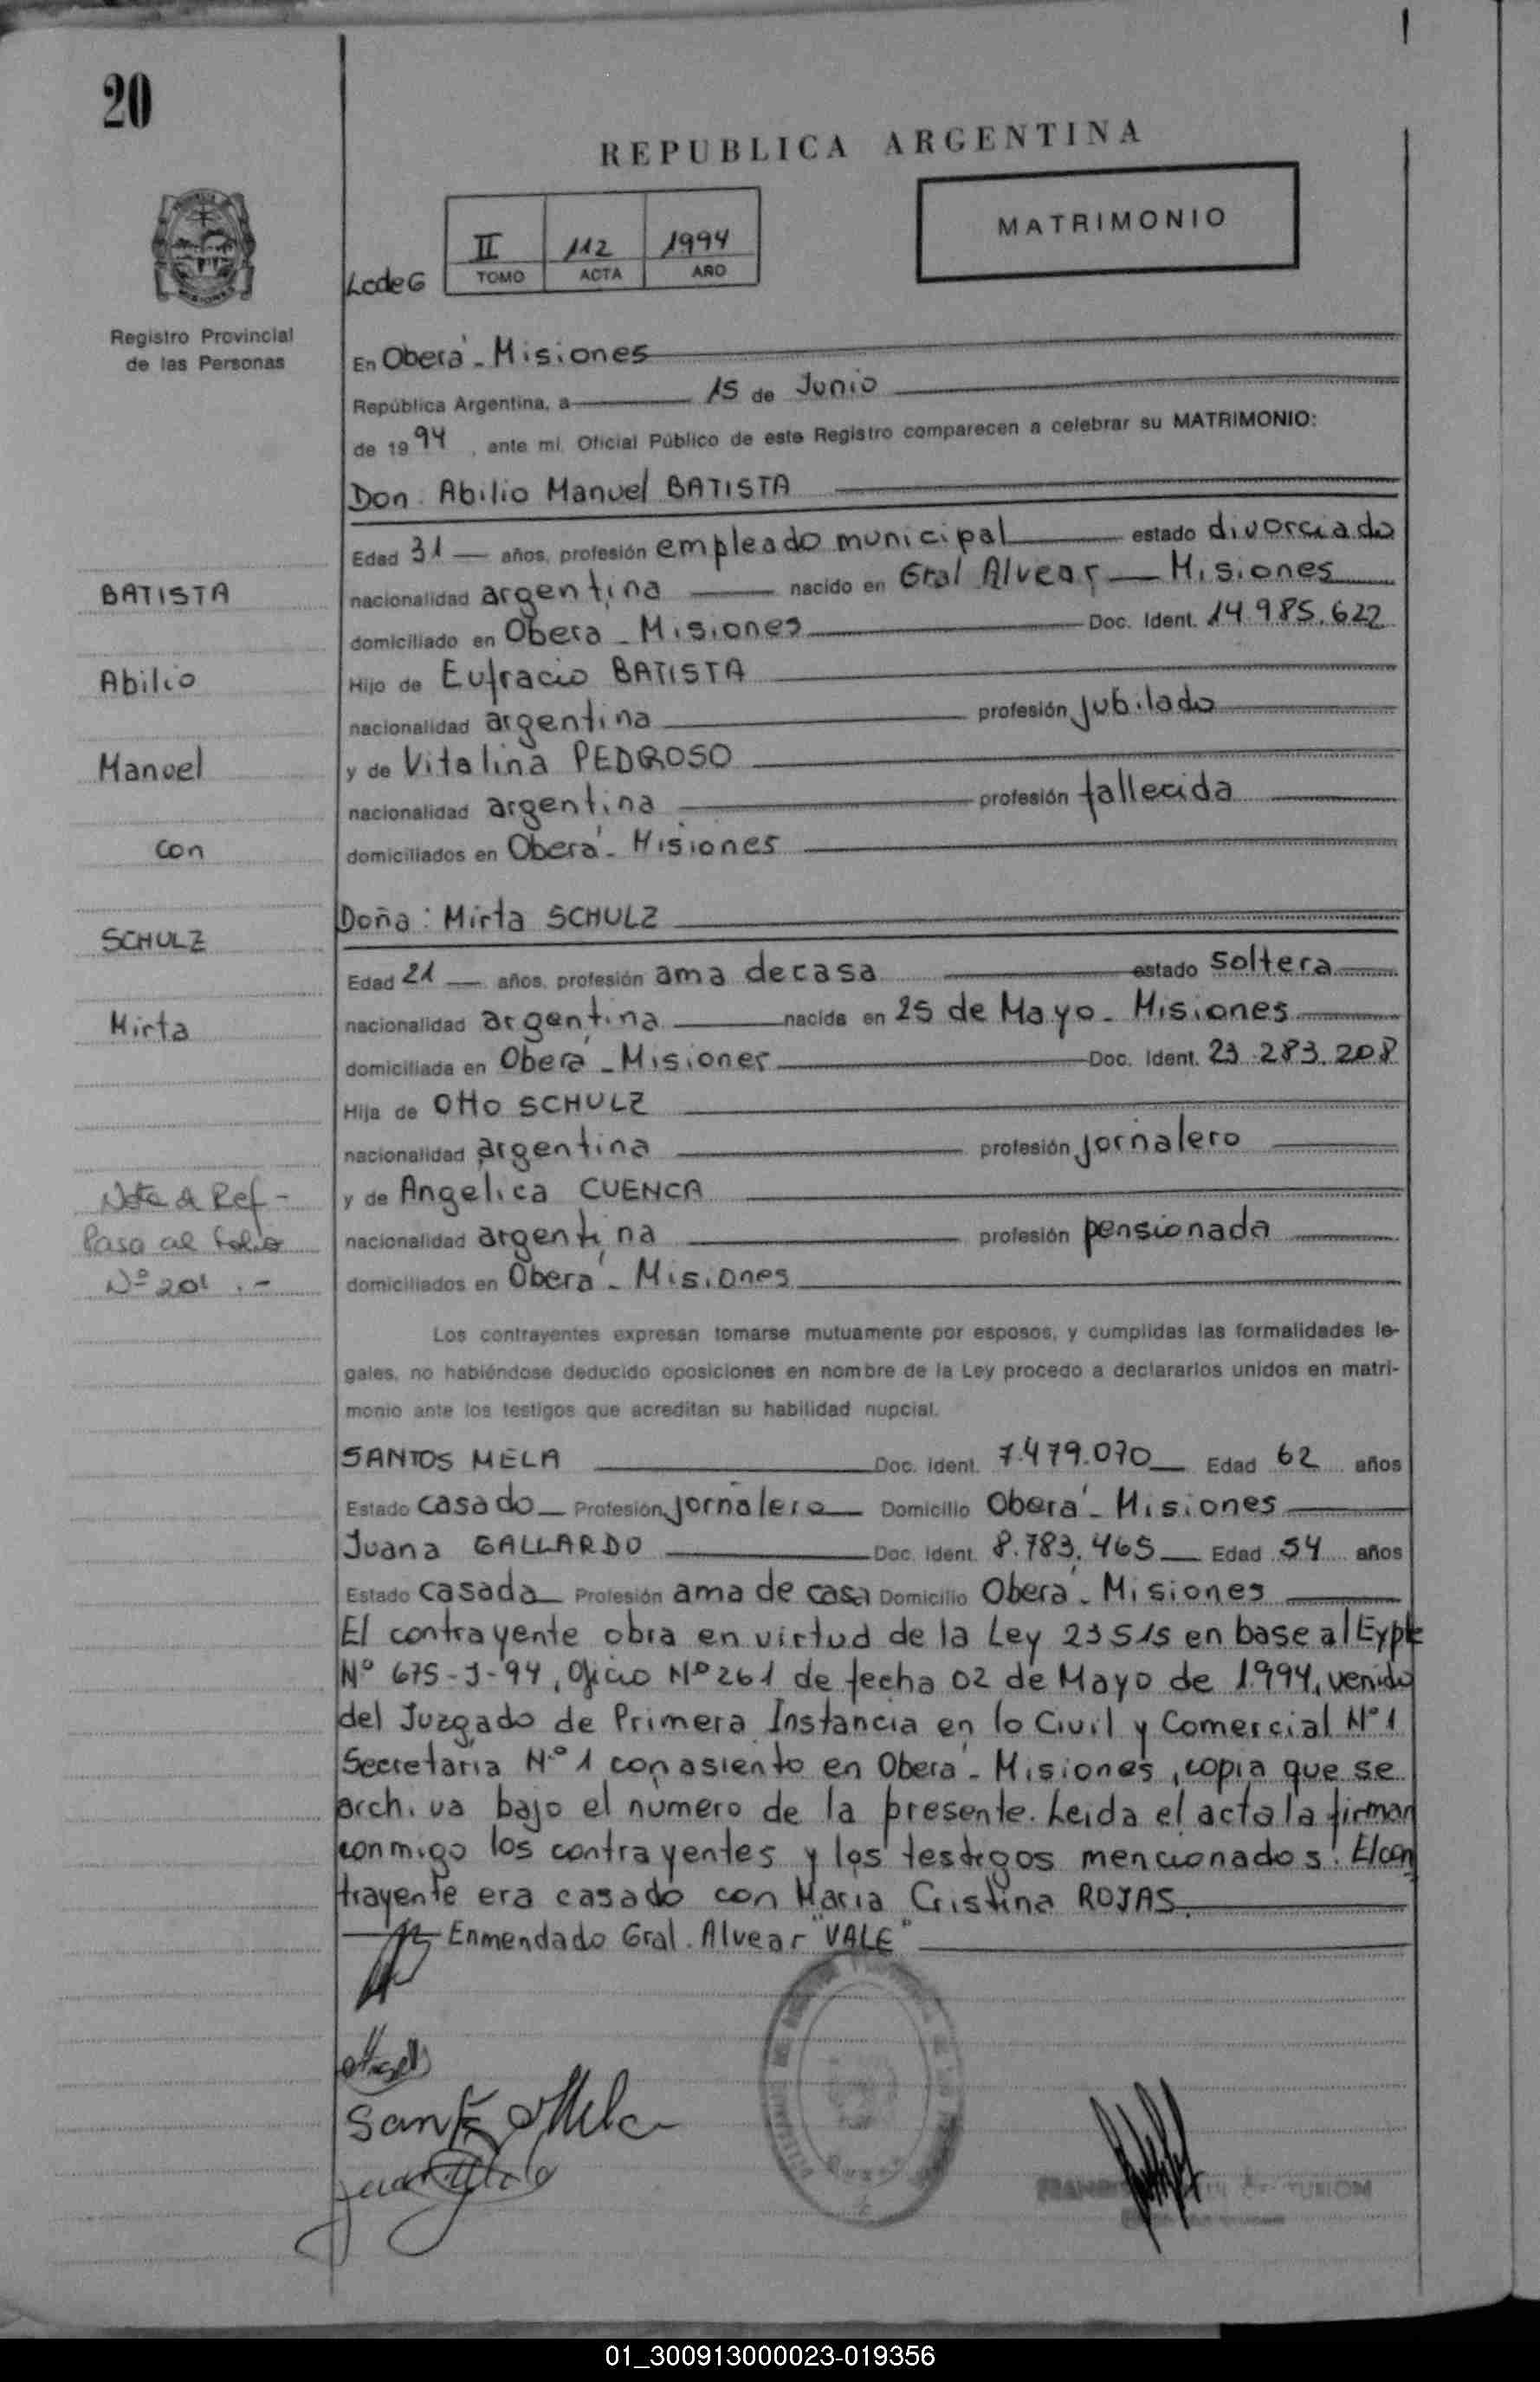 20
REPUBLICA ARGENTINA
MATRIMONIO
II 112 1994
LcdeG TOMO ACTA AÑO
Registro Provincial
de las Personas
En Oberá - Misiones
República Argentina, a 15 de Junio
de 1994, ante mi, Oficial Público de este Registro comparecen a celebrar su MATRIMONIO:
Don. Abilio Manuel BATISTA
Edad 31 años, profesión empleado municipal estado divorciado
BATISTA
nacionalidad argentina nacido en Gral Alvear - Misiones
domiciliado en Obera - Misiones Doc. Ident. 14.985.622
Abilio
Hijo de Eufracio BATISTA
nacionalidad argentina profesión jubilado
Manuel
y de Vitalina PEDROSO
nacionalidad argentina profesión fallecida
con
domiciliados en Oberá - Misiones
Doña: Mirta SCHULZ
SCHULZ
Edad 21 años, profesión ama de casa estado soltera
Mirta
nacionalidad argentina nacida en 25 de Mayo - Misiones
domiciliada en Oberá - Misiones Doc. Ident. 23.283.208
Hija de Otto SCHULZ
nacionalidad argentina profesión jornalero
Nota de Ref -
y de Angelica CUENCA
Pasa al folio
nacionalidad argentina profesión pensionada
Nº 201 .-
domiciliados en Oberá - Misiones
Los contrayentes expresan tomarse mutuamente por esposos, y cumplidas las formalidades le-
gales, no habiéndose deducido oposiciones en nombre de la Ley procedo a declararlos unidos en matri-
monio ante los testigos que acreditan su habilidad nupcial.
SANTOS MELA Doc. Ident. 7.479.070 Edad 62 años
Estado casado Profesión jornalero Domicilio Oberá - Misiones
Juana GALLARDO Doc. Ident. 8.783.465 Edad 54 años
Estado casada Profesión ama de casa Domicilio Oberá - Misiones
El contrayente obra en virtud de la Ley 23515 en base al Expte
Nº 675-J-94, Oficio Nº 261 de fecha 02 de Mayo de 1.994, venido
del Juzgado de Primera Instancia en lo Civil y Comercial Nº 1
Secretaría Nº 1 con asiento en Oberá - Misiones, copia que se
archiva bajo el numero de la presente. Leida el acta la firman
conmigo los contrayentes y los testigos mencionados. El con
trayente era casado con Maria Cristina ROJAS.
Enmendado Gral. Alvear "VALE"
Santo Mela
01_300913000023-019356